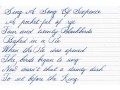 Sing A Song Of Sixpence
A pocket full of rye
Four and twenty blackbirds
Baked in a Pie
When the Pie was opened
The birds began to sing
Now wasn't that a dainty dish
To set before the King